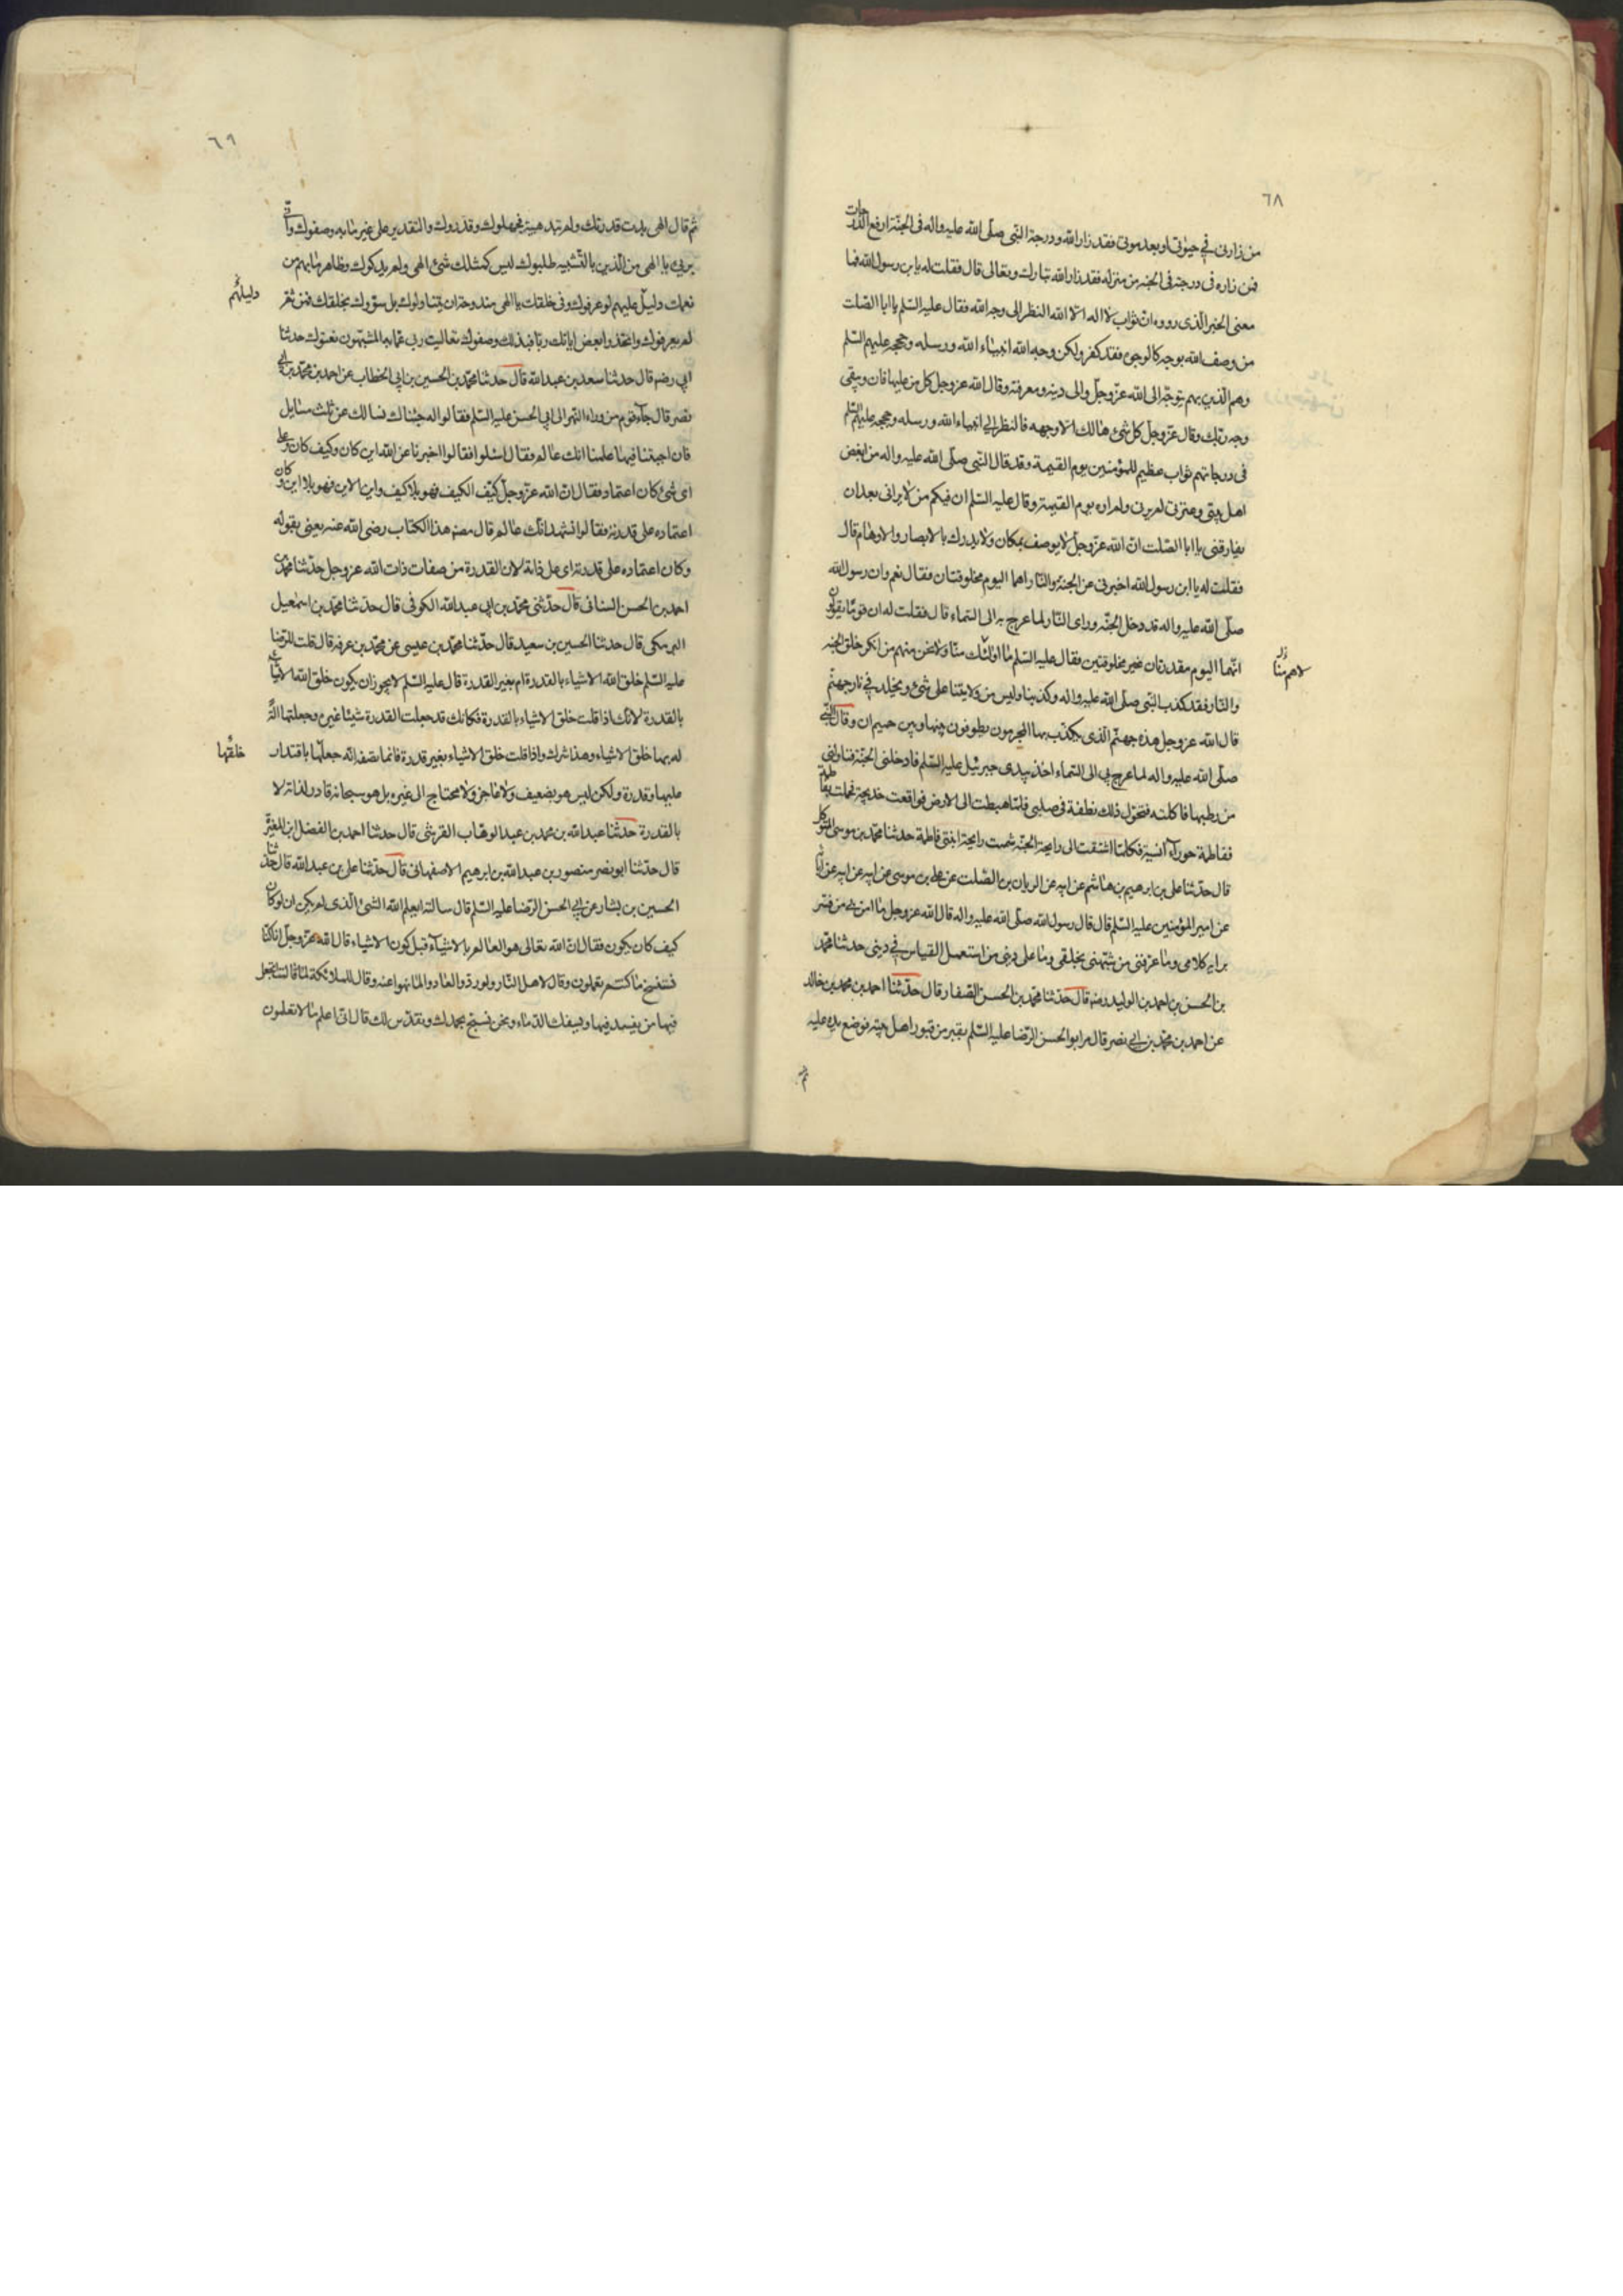 ٦٨
من زارنی فی حیوتی او بعد موتی فقد زار الله و درجة النبی صلّی الله علیه واله فی الجنّة ارفع الدرجات
فمن زاره فی درجته فی الجنه من منزله فقد زار الله تبارك وتعالی قال فقلت له یابن رسول الله فما
معنی الخبر الّذی رووه انّ ثواب لا اله الّا الله النظر الی وجه الله فقال علیه السّلم یا ابا الصّلت
من وصف الله بوجه كالوجوه فقد كفر ولكن وجه الله انبیاء الله ورسله وحججه علیهم السّلم
وهم الّذین بهم یتوجّه الی الله عزّ وجلّ والی دینه ومعرفته وقال الله عز وجل كل من علیها فان ویبقی
وجه ربّك وقال عزّ وجلّ كلّ شئ هالك الا وجهه فالنظر الی انبیاء الله ورسله وحججه علیهم السّلم
فی درجاتهم ثواب عظیم للمؤمنین یوم القیمة وقد قال النبی صلّی الله علیه واله من ابغض
اهل بیتی وعترتی لم یرنی ولم اره یوم القیمة وقال علیه السّلم ان فیكم من لا یرانی بعد ان
یفارقنی یا ابا الصّلت انّ الله عزّ وجلّ لا یوصف بمكان ولا یدرك بالابصار والاوهام قال
فقلت له یا ابن رسول الله اخبرنی عن الجنّة والنّار اهما الیوم مخلوقتان فقال نعم وان رسول الله
صلّی الله علیه واله قد دخل الجنّه ورای النّار لما عرج به الی السّماء قال فقلت له ان قومًا یقولون
انّهما الیوم مقدرتان غیر مخلوقتین فقال علیه السّلم ما اولٰئك منّا ولا نحن منهم من انكر خلق الجنه
لا هم منّا
والنّار فقد كذب النّبی صلّی الله علیه واله وكذبنا ولیس من ولایتنا علی شئ ویخلد فی نار جهنّم
قال الله عز وجل هذه جهنّم الّذی یكذّب بها المجرمون یطوفون بینها وبین حمیم ان وقال النّبی
صلّی الله علیه واله لما عرج بی الی السّماء اخذ بیدی جبرئیل علیه السّلم فادخلنی الجنّة فناولنی
من رطبها فاكلته فتحوّل ذلك نطفة فی صلبی فلمّا هبطت الی الارض فواقعت خدیجة فحملت بفاطمة
ففاطمة حورآء انسیة فكلما اشتقت الی رایحة الجنّة شممت رایحة ابنتی فاطمة حدثنا محمّد بن موسی المتوكل
قال حدّثنا علی بن ابرهیم بن هاشم عن ابیه عن الریان بن الصّلت عن علی بن موسی عن ابیه عن ابائه
عن امیر المؤمنین علیه السّلم قال قال رسول الله صلّی الله علیه واله قال الله عز وجل ما امن بی من فسّر
برایه كلامی وما عرفنی من شبّهنی بخلقی وما علی دینی من استعمل القیاس فی دینی حدثنا محمّد
بن الحسن بن احمد بن الولید رضه قال حدّثنا محمّد بن الحسن الصّفار قال حدّثنا احمد بن محمد بن خالد
عن احمد بن محمّد بن ابی نصر قال مر ابو الحسن الرّضا علیه السّلم بقبر من قبور اهل بیته فوضع یده علیه
ثم
٦٩
ثم قال الهی بدت قدرتك ولم تبد هیبة فجهلوك وقدّروك والتقدیر علی غیر ما به وصفوك وانّی
بریء یا الهی من الّذین بالتّشبیه طلبوك لیس كمثلك شئ الهی ولم یدركوك وظاهر ما بهم من
نعمك دلیل علیهم لو عرفوك وفی خلقك یا الهی مندوحة ان یتناولوك بل سوّوك بخلقك فمن ثمّ
دلیلهم
لم یعرفوك واتخذوا بعض ایاتك ربّا فبذلك وصفوك تعالیت ربی عمّا به المشبّهون نعتوك حدثنا
ابی رضه قال حدثنا سعد بن عبد الله قال حدّثنا محمّد بن الحسین بن ابی الخطاب عن احمد بن محمّد بن ابی
نصر قال جآء قوم من وراء النهر الی ابی الحسن علیه السّلم فقالوا له جئناك نسالك عن ثلث مسایل
فان اجبتنا فیها علمنا انك عالم فقال اسئلوا فقالوا اخبرنا عن الله این كان وكیف كان وعلی
ای شئ كان اعتماده فقال انّ الله عزّ وجلّ كیّف الكیف فهو بلا كیف واین الاین فهو بلا این وكان
اعتماده علی قدرته فقالوا نشهد انّك عالم قال مصنف هذا الكتاب رضی الله عنه یعنی بقوله
وكان اعتماده علی قدرته ای علی ذاته لان القدرة من صفات ذات الله عز وجل حدّثنا محمّد بن
احمد بن الحسن السنانی قال حدّثنی محمّد بن ابی عبد الله الكوفی قال حدّثنا محمّد بن اسمٰعیل
البرمكی قال حدثنا الحسین بن سعید قال حدّثنا محمّد بن عیسی عن محمّد بن عرفة قال قلت للرّضا
علیه السّلم خلق الله الاشیاء بالقدرة ام بغیر القدرة قال علیه السّلم لا یجوز ان یكون خلق الله الاشیاء
بالقدرة لانّك اذا قلت خلق الاشیاء بالقدرة فكانك قد جعلت القدرة شیئا غیره وجعلتها الة
له بها خلق الاشیاء وهذا شرك واذا قلت خلق الاشیاء بغیر قدرة فانما تصفه انّه جعلها باقتدار
خلقها
علیها وقدرة ولكن لیس هو بضعیف ولا عاجز ولا محتاج الی غیره بل هو سبحانه قادر لذاته لا
بالقدرة حدّثنا عبد الله بن محمد بن عبد الوهّاب القرشی قال حدثنا احمد بن الفضل ابن المغیرة
قال حدّثنا ابو نصر منصور بن عبد الله بن ابرهیم الاصفهانی قال حدّثنا علی بن عبد الله قال حدّثنا
الحسین بن بشار عن ابی الحسن الرّضا علیه السّلم قال سالته ایعلم الله الشئ الّذی لم یكن ان لو كان
كیف كان یكون فقال انّ الله تعالی هو العالم بالاشیآء قبل كون الاشیاء قال الله عزّ وجلّ انا كنّا
نستنسخ ما كنتم تعملون وقال لاهل النّار ولو ردّوا لعادوا لما نهوا عنه وقال للملائكة لما قالت اتجعل
فیها من یفسد فیها ویسفك الدّماء ونحن نسبّح بحمدك ونقدّس لك قال انّی اعلم ما لا تعلمون